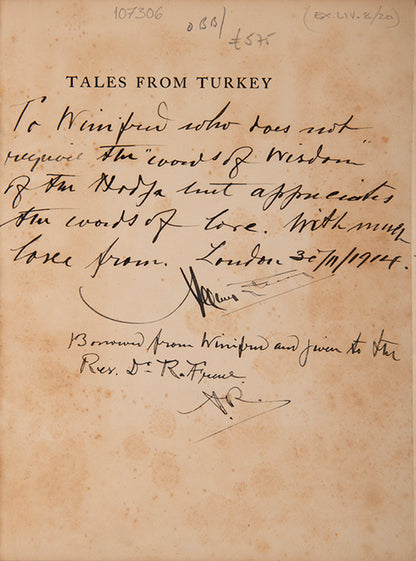 107306
OBB/
£575
(EX.LIV.8/20)
TALES FROM TURKEY
To Winifred who does not
require the "words of Wisdom"
of the Hodja but appreciates
the words of love. With much
love from. London 30/11/1914.
Borrowed from Winifred and given to the
Rev. Dr R.
A.R.